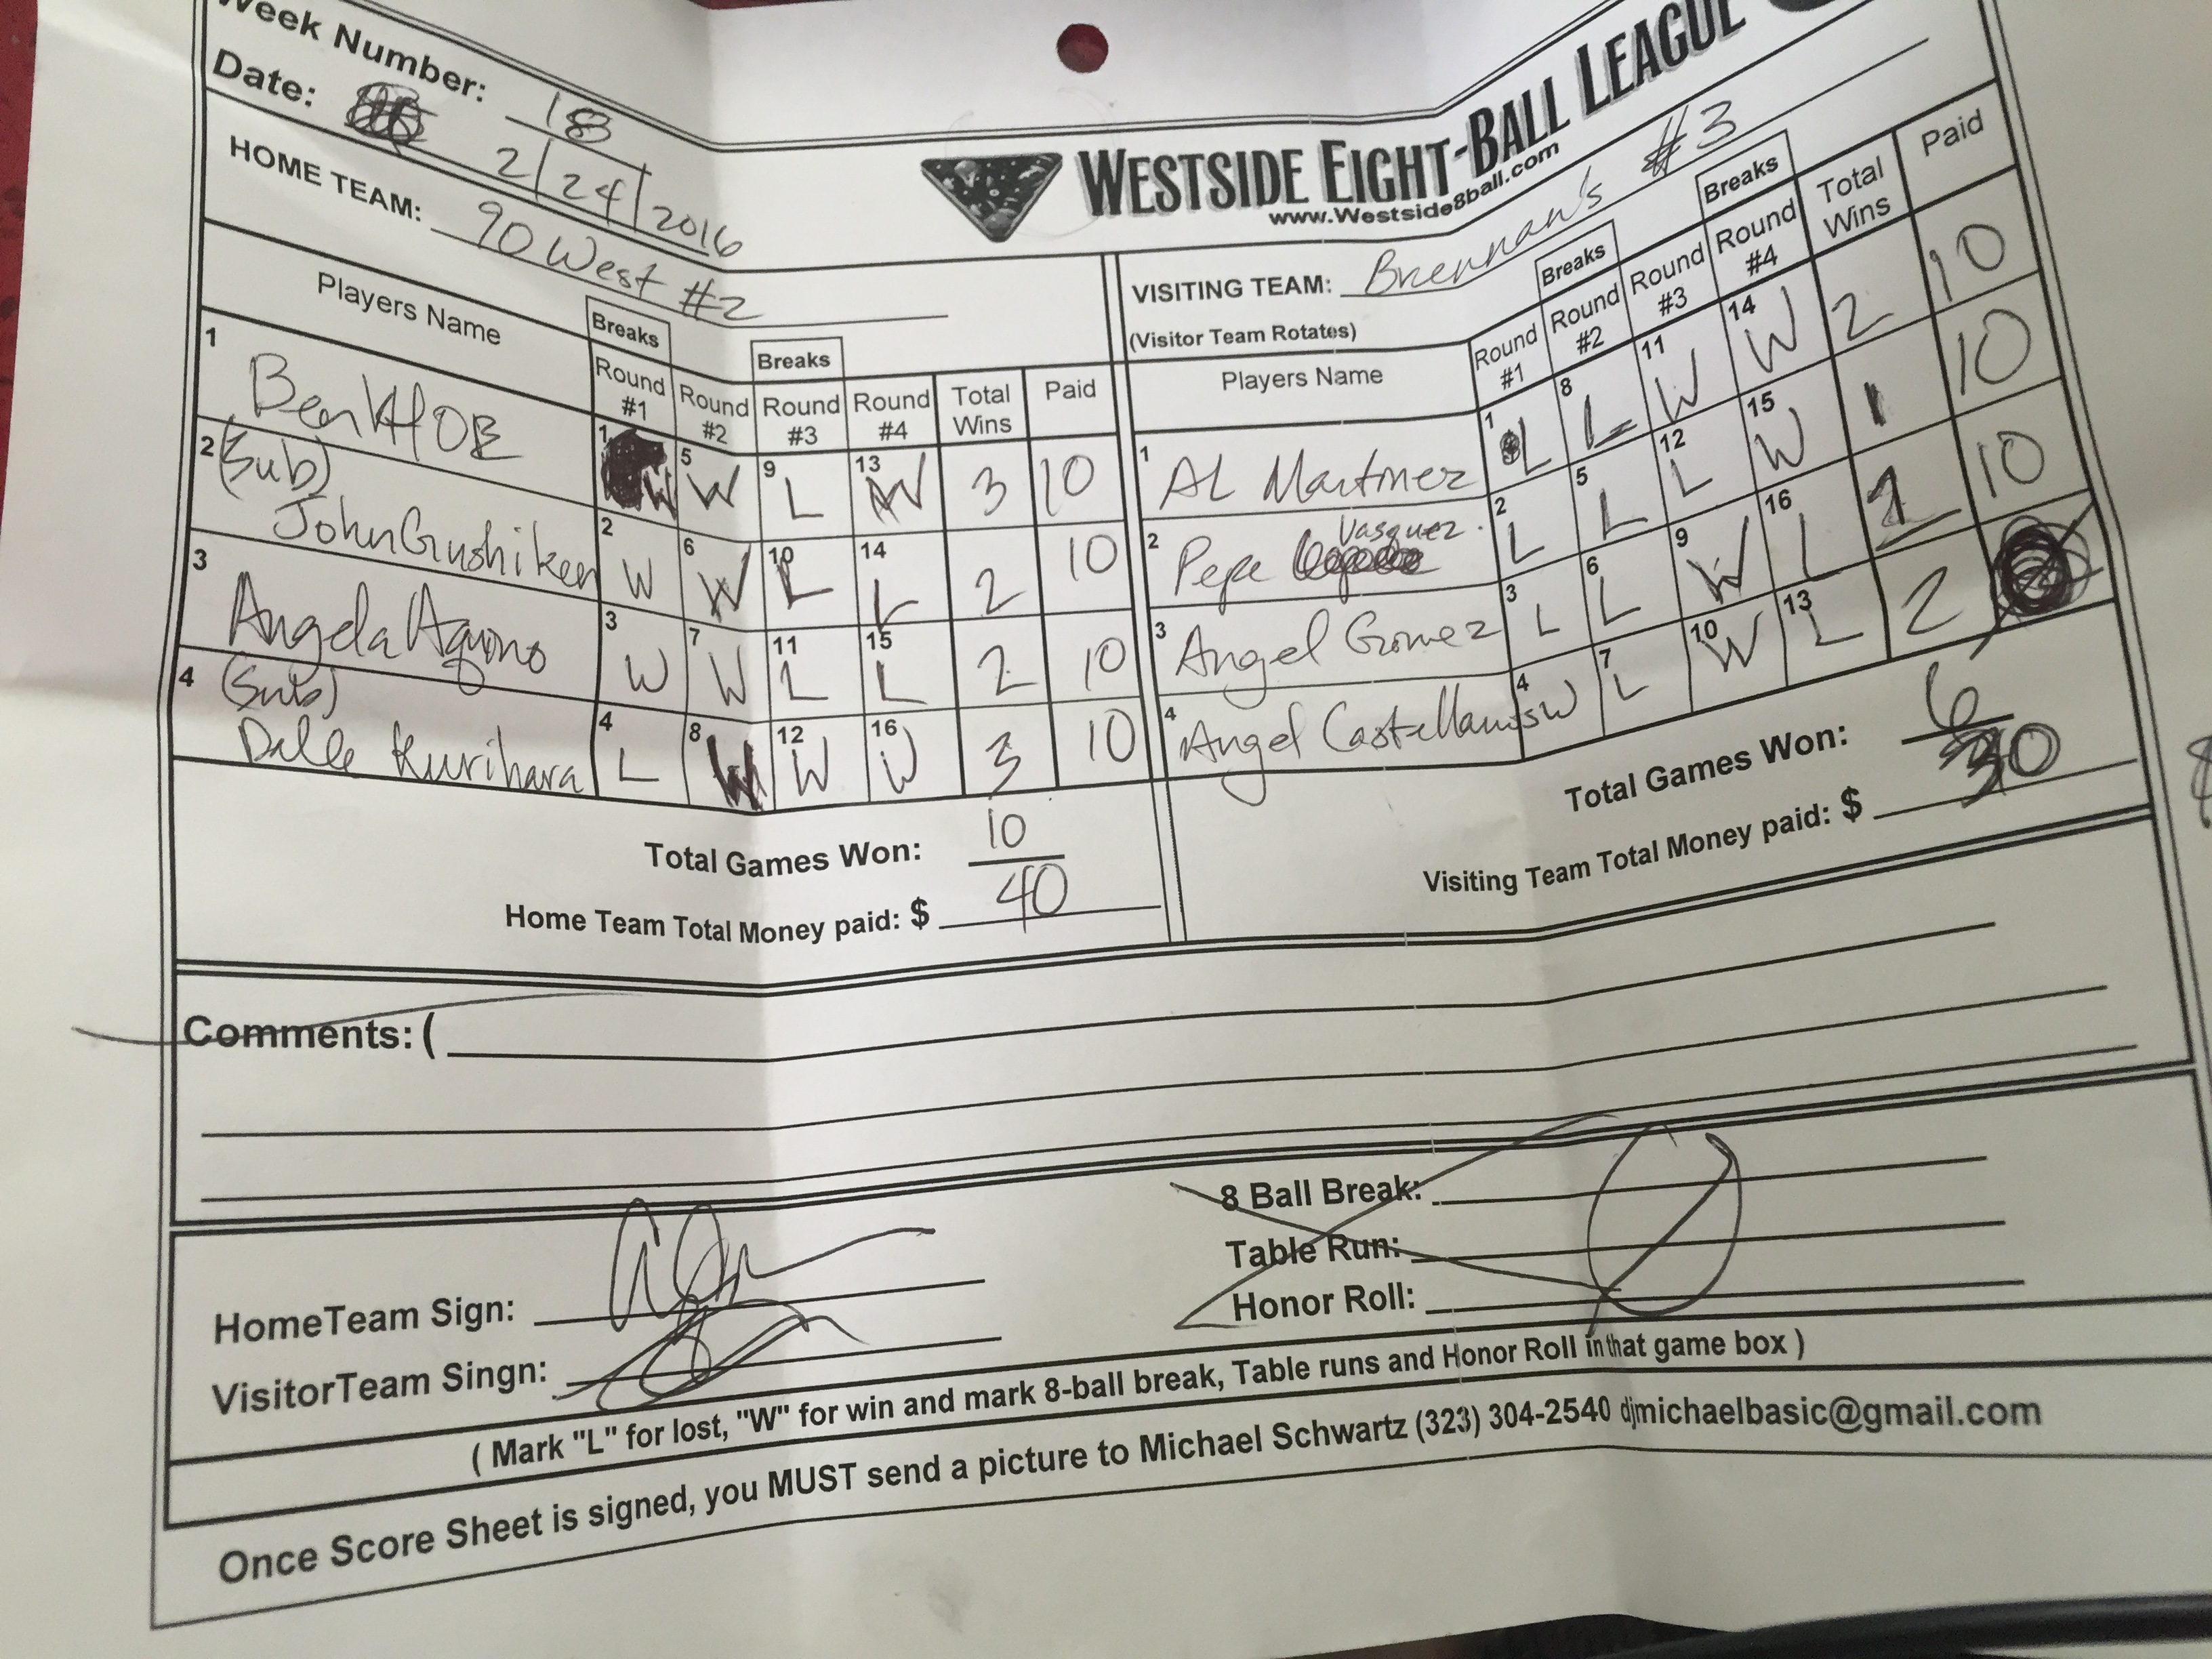 Week Number: 18
Date: 2/24/2016
WESTSIDE EIGHT-BALL LEAGUE
www.Westside8ball.com
HOME TEAM: 90 West #2
VISITING TEAM: Brennan's #3
(Visitor Team Rotates)
Players Name Breaks Round #1 Round #2 Breaks Round #3 Round #4 Total Wins Paid
1 Ben 1 W 5 W 9 L 13 W 3 10
2 (Sub) John Gushiken 2 W 6 W 10 L 14 L 2 10
3 Angela 3 W 7 W 11 L 15 L 2 10
4 (Sub) Dale Kurihara 4 L 8 W 12 W 16 W 3 10
Total Games Won: 10
Home Team Total Money paid: $ 40
Players Name Round #1 Breaks Round #2 Round #3 Breaks Round #4 Total Wins Paid
1 AL Martinez 1 L 8 L 11 W 14 W 2 10
2 Pepe Vasquez 2 L 5 L 12 L 15 W 1 10
3 Angel Gomez 3 L 6 L 9 W 16 L 10
4 Angel Castellanos 4 W 7 L 10 W 13 L 2
Total Games Won: 6
Visiting Team Total Money paid: $ 30
Comments: (
8 Ball Break:
Table Run:
Honor Roll:
HomeTeam Sign:
VisitorTeam Singn:
( Mark "L" for lost, "W" for win and mark 8-ball break, Table runs and Honor Roll in that game box )
Once Score Sheet is signed, you MUST send a picture to Michael Schwartz (323) 304-2540 djmichaelbasic@gmail.com